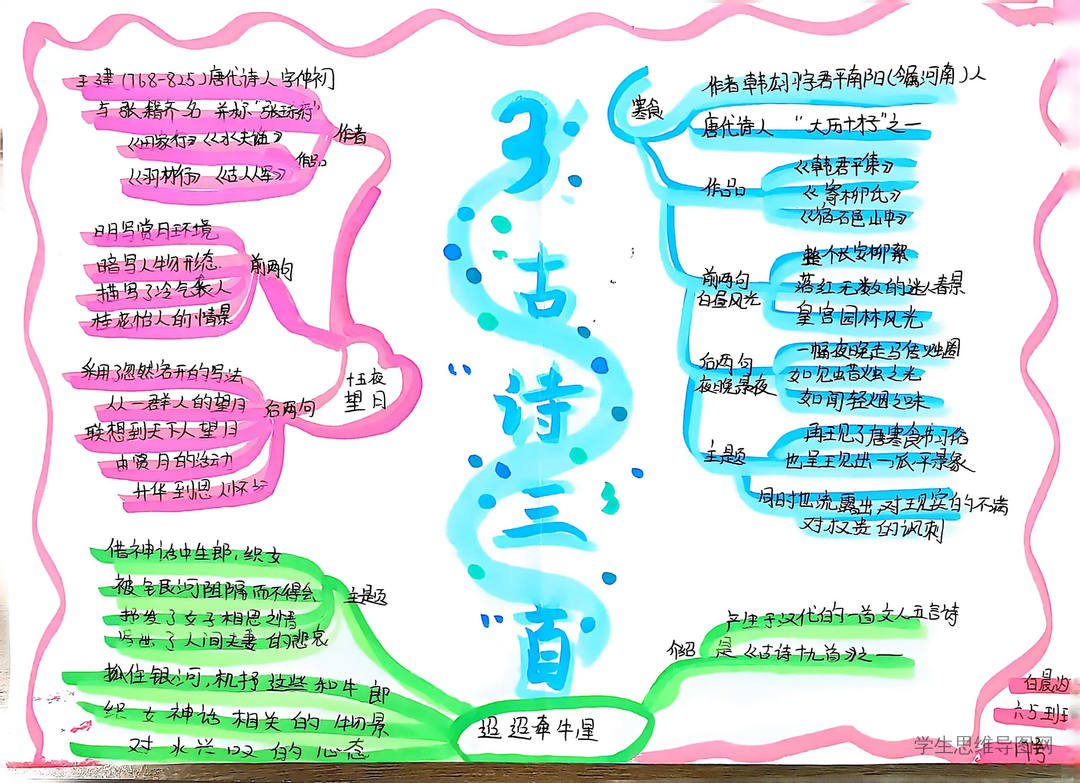 3
古
诗
三
首
王建(768-825)唐代诗人字仲初
与张籍齐名 并称"张王乐府"
作者
《田家行》《水夫谣》
《羽林行》《古从军》
作品
明写赏月环境
暗写人物形态
描写了冷气袭人
桂花怡人的情景
前两句
采用了忽然宕开的写法
从一群人的望月
联想到天下人望月
由赏月的活动
升华到思人怀
后两句
十五夜
望月
寒食
作者韩翃字君平南阳(今属河南)人
唐代诗人 "大历十才子"之一
作品
《韩君平集》
《寄柳氏》
《宿石邑山中》
前两句
白昼风光
整个长安柳絮
落红无数的迷人春景
皇宫园林风光
后两句
夜晚景夜
一幅夜晚走马传烛图
如见蜡烛之光
如闻轻烟之味
主题
再现了唐寒食节习俗
也呈现出一派太平景象
同时也流露出,对现实的不满
对权贵的讽刺
借神话中牛郎,织女
被银河阻隔而不得会
抒发了女子相思之情
写出了人间夫妻的悲哀
主题
抓住银河,机杼这些和牛郎
织女神话相关的物景
迢迢牵牛星
介绍
产生于汉代的一首文人五言诗
是《古诗十九首》之一
六5班
学生思维导图网